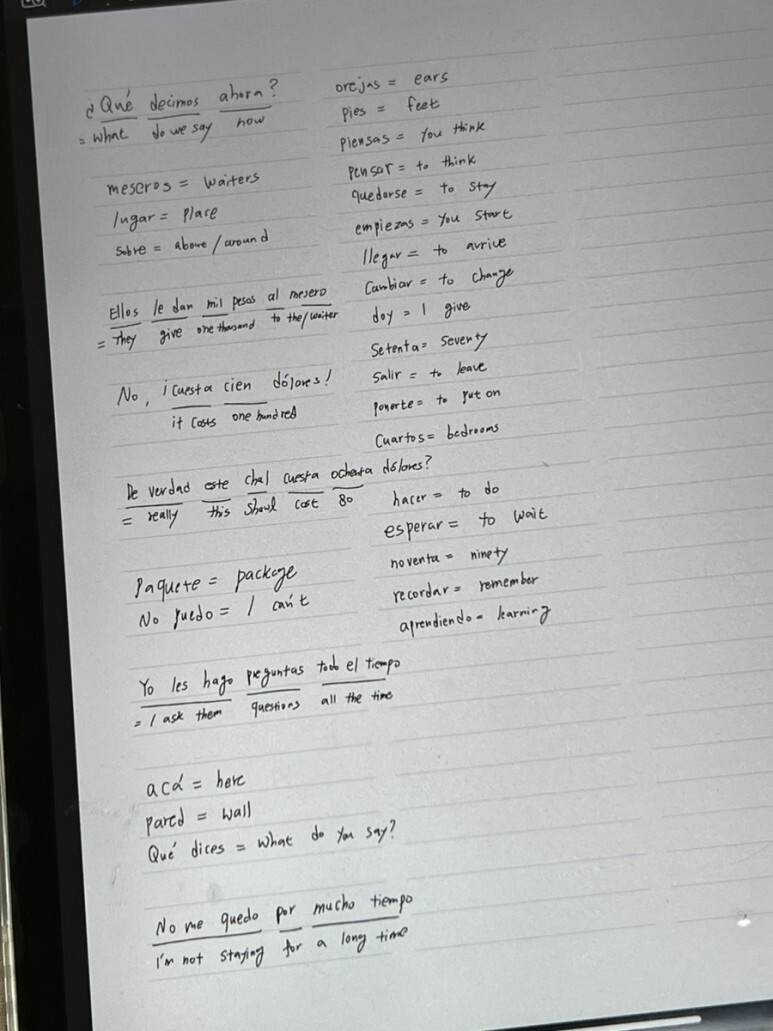 ¿Qué decimos ahora?
= what do we say now
meseros = waiters
lugar = place
sobre = above / around
Ellos le dan mil pesos al mesero
= They give one thousand to the/waiter
No, ¡cuesta cien dólares!
it costs one hundred
De verdad este chal cuesta ochenta dólares?
= really this shawl cost 80
Paquete = package
No puedo = I can't
Yo les hago preguntas todo el tiempo
= I ask them questions all the time
acá = here
pared = wall
Qué dices = What do you say?
No me quedo por mucho tiempo
I'm not staying for a long time
orejas = ears
pies = feet
piensas = You think
pensar = to think
quedarse = to stay
empiezas = you start
llegar = to arrive
Cambiar = to change
doy = I give
Setenta = Seventy
Salir = to leave
Ponerte = to put on
Cuartos = bedrooms
hacer = to do
esperar = to wait
noventa = ninety
recordar = remember
aprendiendo = learning